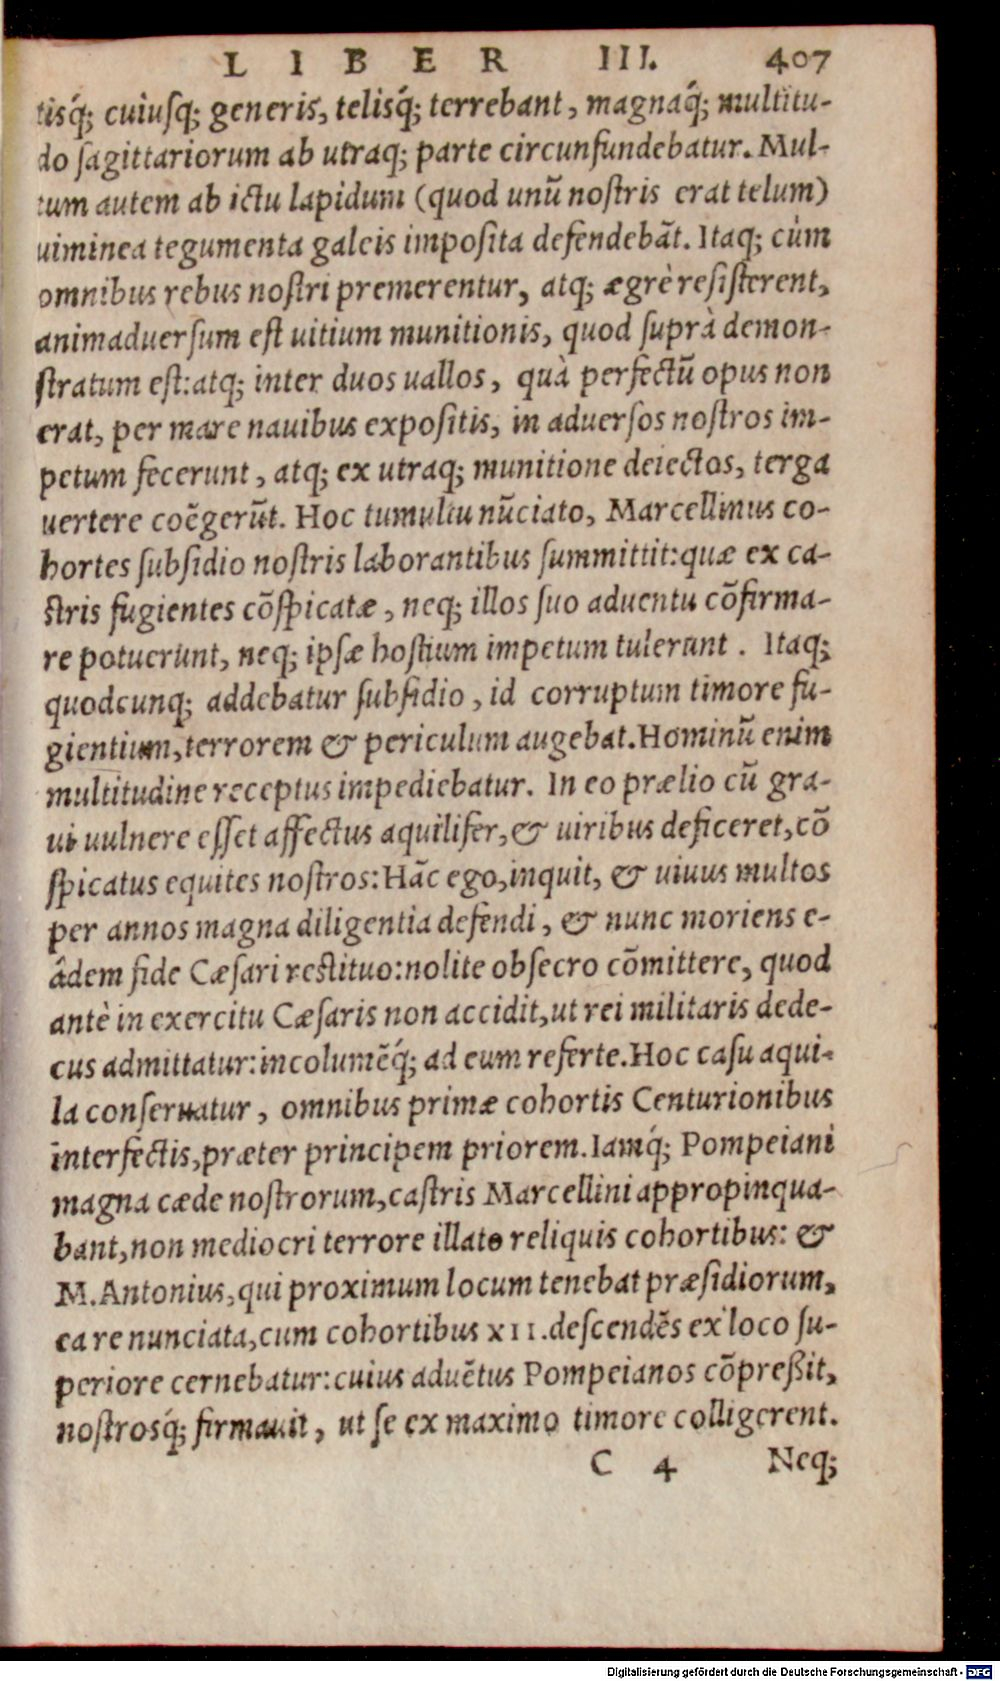 LIBER III. 407
tisq́; cuiusq; generis, telisq́; terrebant, magnaq́; multitu-
do sagittariorum ab utraq; parte circunfundebatur. Mul-
tum autem ab ictu lapidum (quod unũ nostris erat telum)
uiminea tegumenta galeis imposita defendebãt. Itaq; cùm
omnibus rebus nostri premerentur, atq; ægrè resisterent,
animaduersum est uitium munitionis, quod suprà demon-
stratum est: atq; inter duos uallos, quà perfectũ opus non
erat, per mare nauibus expositis, in aduersos nostros im-
petum fecerunt, atq; ex utraq; munitione deiectos, terga
uertere coẽgerũt. Hoc tumultu nũciato, Marcellinus co-
hortes subsidio nostris laborantibus summittit: quæ ex ca-
stris fugientes cõspicatæ, neq; illos suo aduentu cõfirma-
re potuerunt, neq; ipsæ hostium impetum tulerunt. Itaq;
quodcunq; addebatur subsidio, id corruptum timore fu-
gientium, terrorem & periculum augebat. Hominũ enim
multitudine receptus impediebatur. In eo prælio cũ gra-
ui uulnere esset affectus aquilifer, & uiribus deficeret, cõ
spicatus equites nostros: Hãc ego, inquit, & uiuus multos
per annos magna diligentia defendi, & nunc moriens e-
âdem fide Cæsari restituo: nolite obsecro cõmittere, quod
antè in exercitu Cæsaris non accidit, ut rei militaris dede-
cus admittatur: incolumẽq́; ad eum referte. Hoc casu aqui-
la conseruatur, omnibus primæ cohortis Centurionibus
interfectis, præter principem priorem. Iamq́; Pompeiani
magna cæde nostrorum, castris Marcellini appropinqua-
bant, non mediocri terrore illato reliquis cohortibus: &
M. Antonius, qui proximum locum tenebat præsidiorum,
ea re nunciata, cum cohortibus XII. descendẽs ex loco su-
periore cernebatur: cuius aduẽtus Pompeianos cõpreßit,
nostrosq́; firmauit, ut se ex maximo timore colligerent.
C 4 Neq;
Digitalisierung gefördert durch die Deutsche Forschungsgemeinschaft - DFG